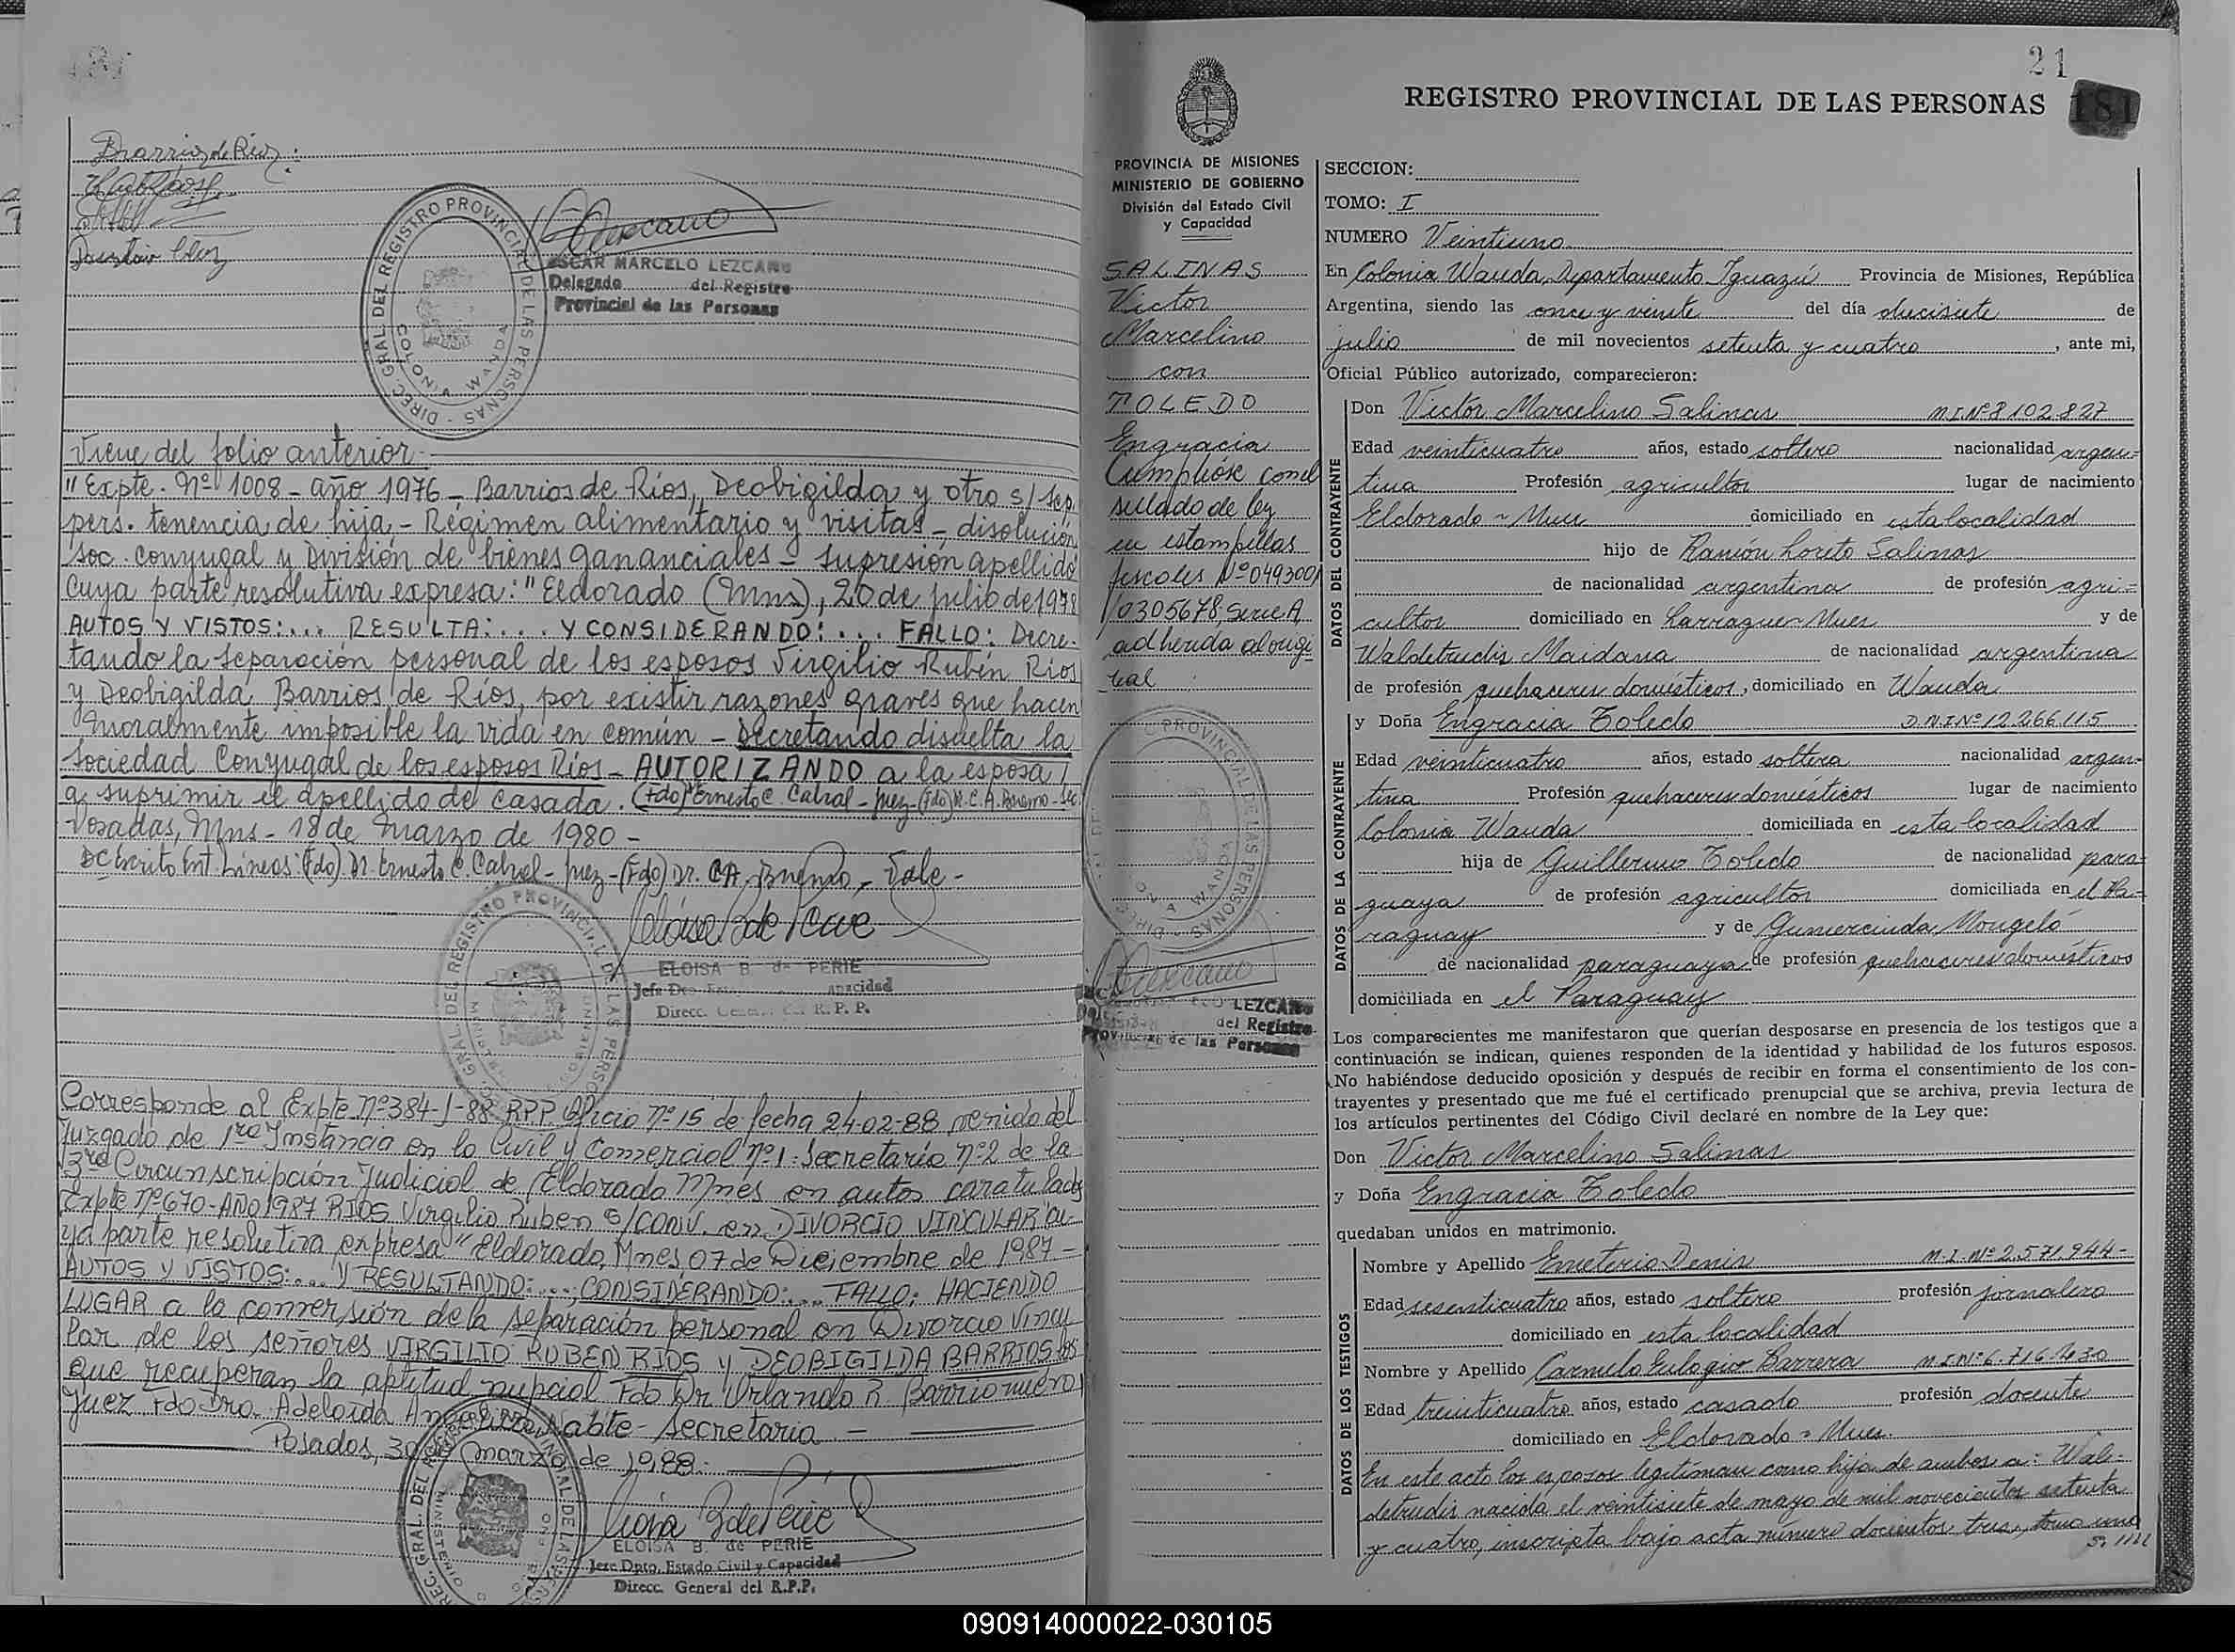 Barrios de Rios.
OSCAR MARCELO LEZCANO
Delegado del Registro
Provincial de las Personas
DIREC. GRAL. DEL REGISTRO PROVINCIAL DE LAS PERSONAS
COLONIA WANDA
Viene del folio anterior
"Expte. Nº 1008 - año 1976 - Barrios de Ríos, Deobigilda y otro s/ sep.
pers. tenencia de hija - Régimen alimentario y visitas - disolución
soc. conyugal y División de bienes gananciales - supresión apellido
cuya parte resolutiva expresa: "Eldorado (Mns), 20 de julio de 1978
AUTOS Y VISTOS:... RESULTA:... Y CONSIDERANDO:... FALLO: Decre-
tando la separación personal de los esposos Virgilio Rubén Ríos
y Deobigilda Barrios de Ríos, por existir razones graves que hacen
moralmente imposible la vida en común - Decretando disuelta la
Sociedad Conyugal de los esposos Ríos - AUTORIZANDO a la esposa
a suprimir el apellido de casada. (Fdo) Ernesto C. Cabral - Juez - (Fdo)
Posadas, Mns - 18 de Marzo de 1980 -
Escrito Ent. Líneas: (Fdo) Dr. Ernesto C. Cabral - Juez - (Fdo) Dr. C.A. - Vale -
ELOISA B. de PERIE
Direcc. R. P. P.
Corresponde al Expte Nº 384-J-88 R.P.P. Oficio Nº 15 de fecha 24-02-88 venido del
Juzgado de 1ra Instancia en lo Civil y Comercial nº 1 - Secretaría nº 2 de la
3ra Circunscripción Judicial de Eldorado Mnes en autos caratulados
Expte Nº 670 - AÑO 1987 RIOS Virgilio Ruben s/CONV. en DIVORCIO VINCULAR cu-
ya parte resolutiva expresa "Eldorado, Mnes 07 de Diciembre de 1987 -
AUTOS Y VISTOS:... Y RESULTANDO:...; CONSIDERANDO:... FALLO: HACIENDO
LUGAR a la conversión de la separación personal en Divorcio Vincu
lar de los señores VIRGILIO RUBEN RIOS y DEOBIGILDA BARRIOS los
que recuperan la aptitud nupcial Fdo Dr Orlando R. Barrionuevo
Juez Fdo Dra. Adeloida - Secretaria -
Posadas, 30 de marzo de 1988.
ELOISA B. de PERIE
Jefe Dpto. Estado Civil y Capacidad
Direcc. General del R.P.P.
21
REGISTRO PROVINCIAL DE LAS PERSONAS
181
PROVINCIA DE MISIONES
MINISTERIO DE GOBIERNO
División del Estado Civil
y Capacidad
SALINAS
Victor
Marcelino
con
TOLEDO
Engracia
Cumpliose con el
sellado de ley
en estampillas
fiscales Nº 049300
0305678, Serie A,
adherida al origi
nal
LEZCANO
del Registro
Provincial de las Personas
SECCION:
TOMO: I
NUMERO Veintiuno
En Colonia Wanda, Departamento Iguazú Provincia de Misiones, República
Argentina, siendo las once y veinte del día diecisiete de
julio de mil novecientos setenta y cuatro, ante mi,
Oficial Público autorizado, comparecieron:
DATOS DEL CONTRAYENTE
Don Victor Marcelino Salinas M.I.Nº 8.102.827
Edad veinticuatro años, estado soltero nacionalidad argen-
tina Profesión agricultor lugar de nacimiento
Eldorado - Mnes domiciliado en esta localidad
hijo de Ramón Loreto Salinas
de nacionalidad argentina de profesión agri-
cultor domiciliado en Larraguer Mnes y de
Waldetrudis Maidana de nacionalidad argentina
de profesión quehaceres domésticos, domiciliado en Wanda
DATOS DE LA CONTRAYENTE
y Doña Engracia Toledo D.N.I.Nº 12.266.115
Edad veinticuatro años, estado soltera nacionalidad argen-
tina Profesión quehaceres domésticos lugar de nacimiento
Colonia Wanda domiciliada en esta localidad
hija de Guillermo Toledo de nacionalidad para-
guaya de profesión agricultor domiciliada en el Pa-
raguay y de Gumercinda Mongeló
de nacionalidad paraguaya de profesión quehaceres domésticos
domiciliada en el Paraguay
Los comparecientes me manifestaron que querían desposarse en presencia de los testigos que a
continuación se indican, quienes responden de la identidad y habilidad de los futuros esposos.
No habiéndose deducido oposición y después de recibir en forma el consentimiento de los con-
trayentes y presentado que me fué el certificado prenupcial que se archiva, previa lectura de
los artículos pertinentes del Código Civil declaré en nombre de la Ley que:
Don Victor Marcelino Salinas
y Doña Engracia Toledo
quedaban unidos en matrimonio.
DATOS DE LOS TESTIGOS
Nombre y Apellido Emeterio Denis M.I.Nº 2.571.944-
Edad sesenticuatro años, estado soltero profesión jornalero
domiciliado en esta localidad
Nombre y Apellido Carmelo Eulogio Barrera M.I.Nº 6.716.430
Edad treinticuatro años, estado casado profesión docente
domiciliado en Eldorado - Mnes.
En este acto los esposos legitiman como hija de ambos a: Wal-
detrudis nacida el veintisiete de mayo de mil novecientos setenta
y cuatro, inscripta bajo acta número docientos tres, tomo uno
090914000022-030105